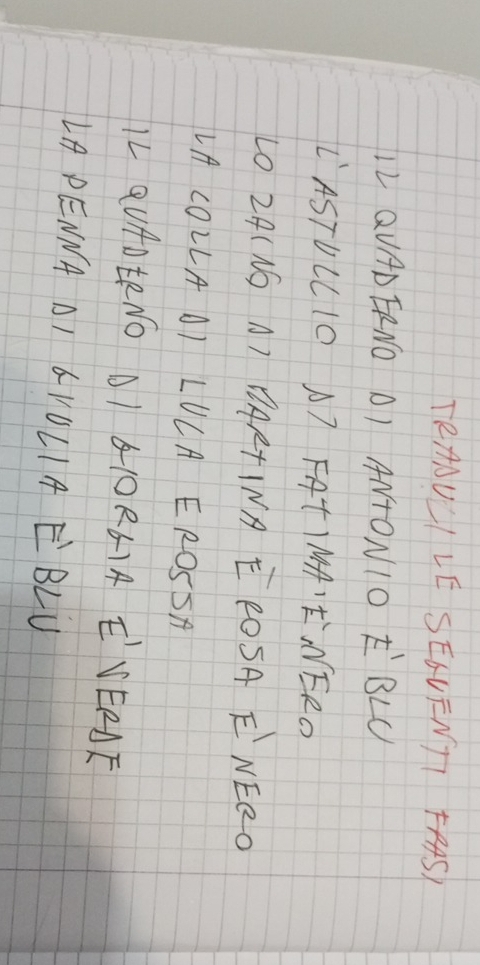 TRADUCI LE SEGUENTI FRASI
IL QUADERNO DI ANTONIO E' BLU
L'ASTUCCIO DI FATIMA' E' NERO
LO ZAINO DI MARTINA È ROSA E' NERO
LA COLLA DI LUCA E ROSSA
IL QUADERNO DI GIORGIA E' VERDE
LA PENNA DI GIULIA E' BLU